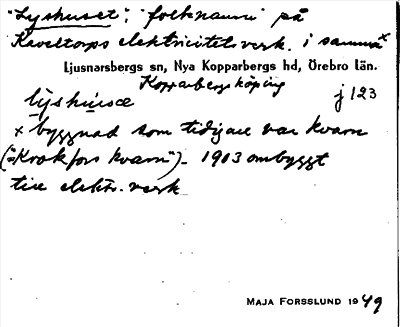 "Lyshuset", "folknamn" på
Kaveltorps elektricitetsverk. i samma x
Ljusnarsbergs sn, Nya Kopparbergs hd, Örebro län.
Kopparbergs köping
lyshúsæ j 123
x byggnad som tidigare var kvarn
(="Krokfors kvarn") – 1903 ombyggt
till elektr. verk
MAJA FORSSLUND 1949